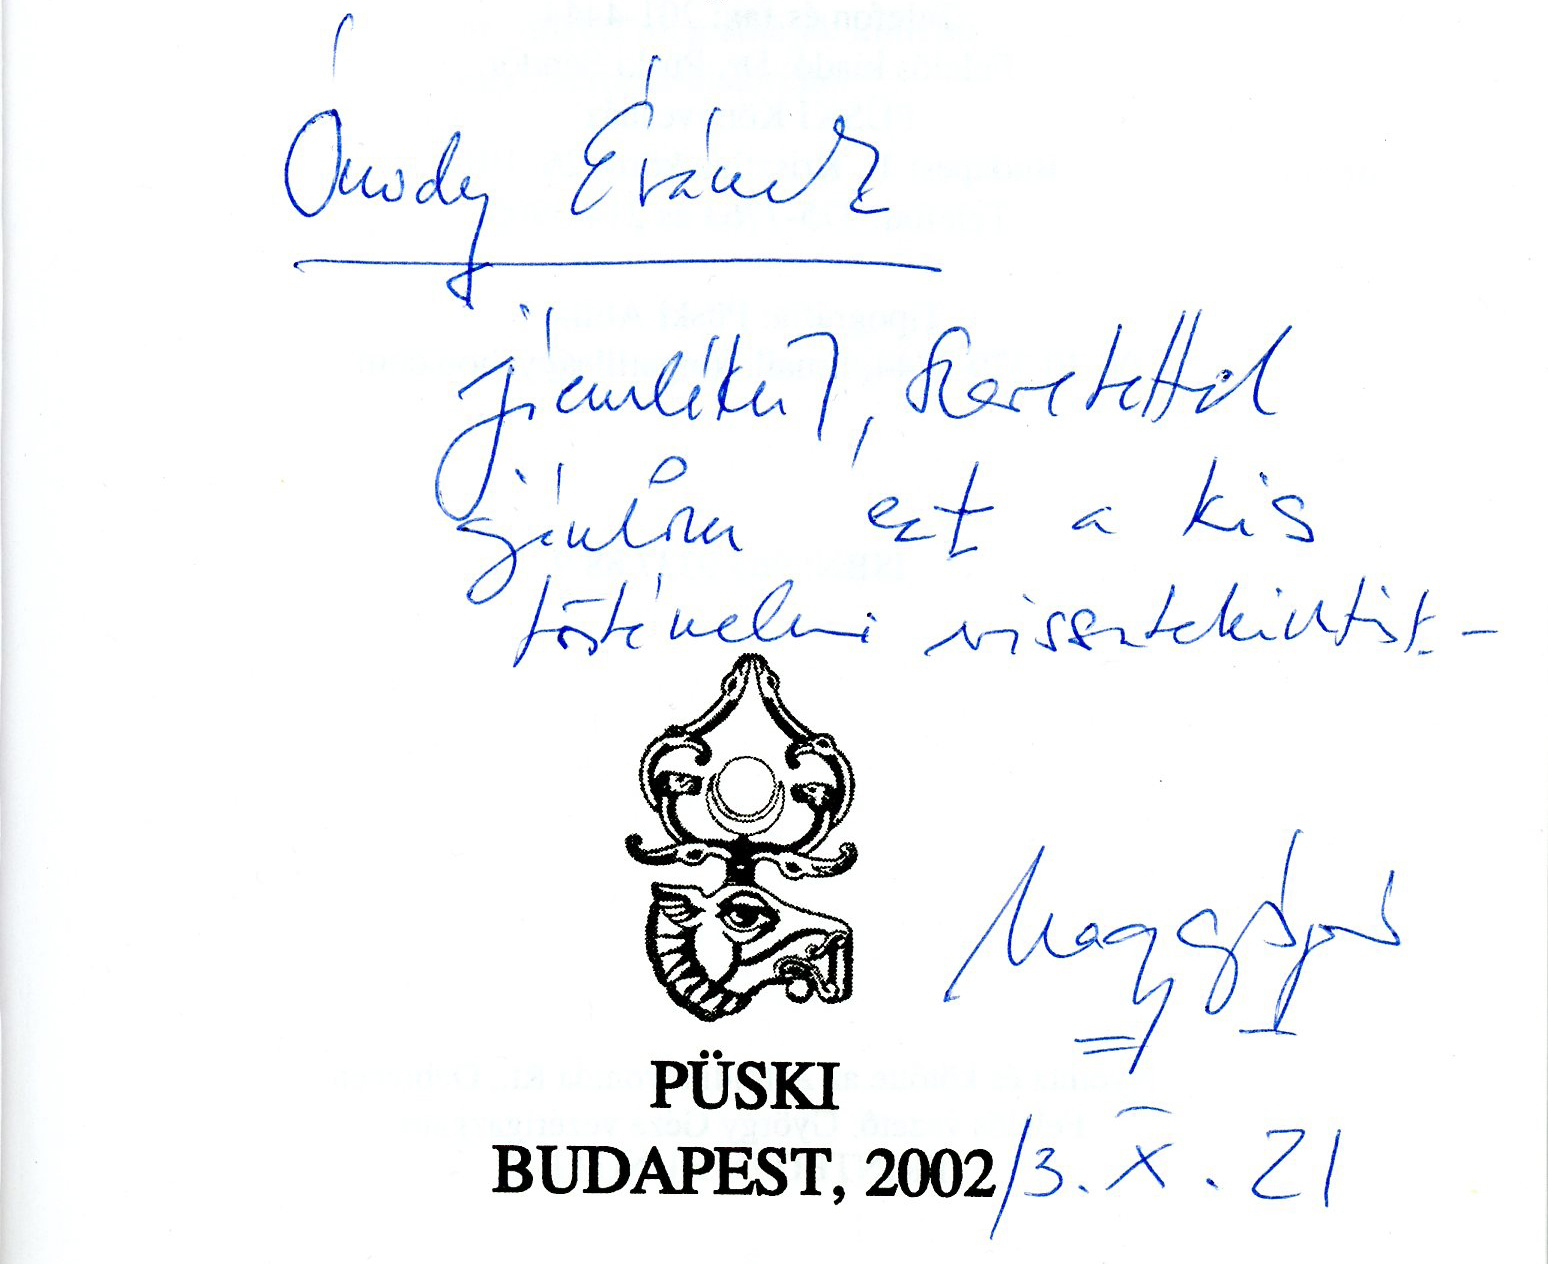 Ónody Évának
emlékül, szeretettel
ajánlom ezt a kis
történelmi visszatekintést.-
PÜSKI
BUDAPEST, 2002/3. X. 21